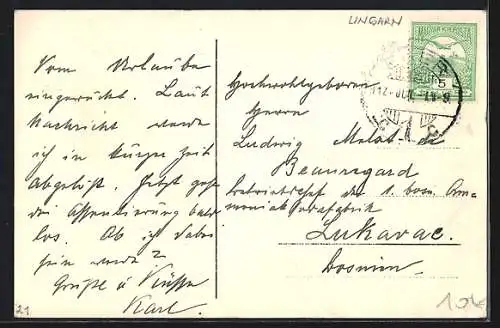 UNGARN
MAGYAR KIR. POSTA
5
Vom Urlaube
eingerückt. Laut
Nachricht werde
ich in kurzer Zeit
abgelöst. Jetzt geht
die Assentierung bald
los. Ob ich dabei
sein werde?
Grüße u Küsse
Karl.
Hochwohlgeboren
Herrn
Ludwig
Beauregard
Betriebschef der 1. bosn. Am-
moniak Sodafabrik
Lukavac.
bosnien.
21